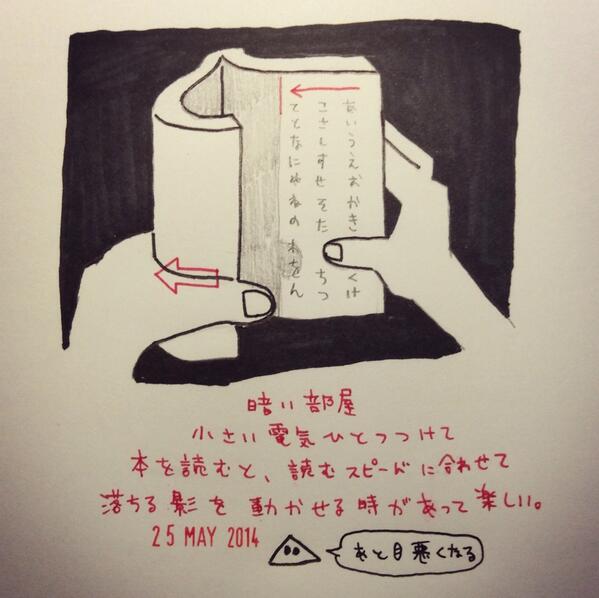 あいうえおかきくけ
こさしすせそたちつ
てとなにぬねのわをん
暗い部屋
小さい電気ひとつつけて
本を読むと、読むスピードに合わせて
落ちる影を動かせる時があって楽しい。
25 MAY 2014
あと目悪くなる